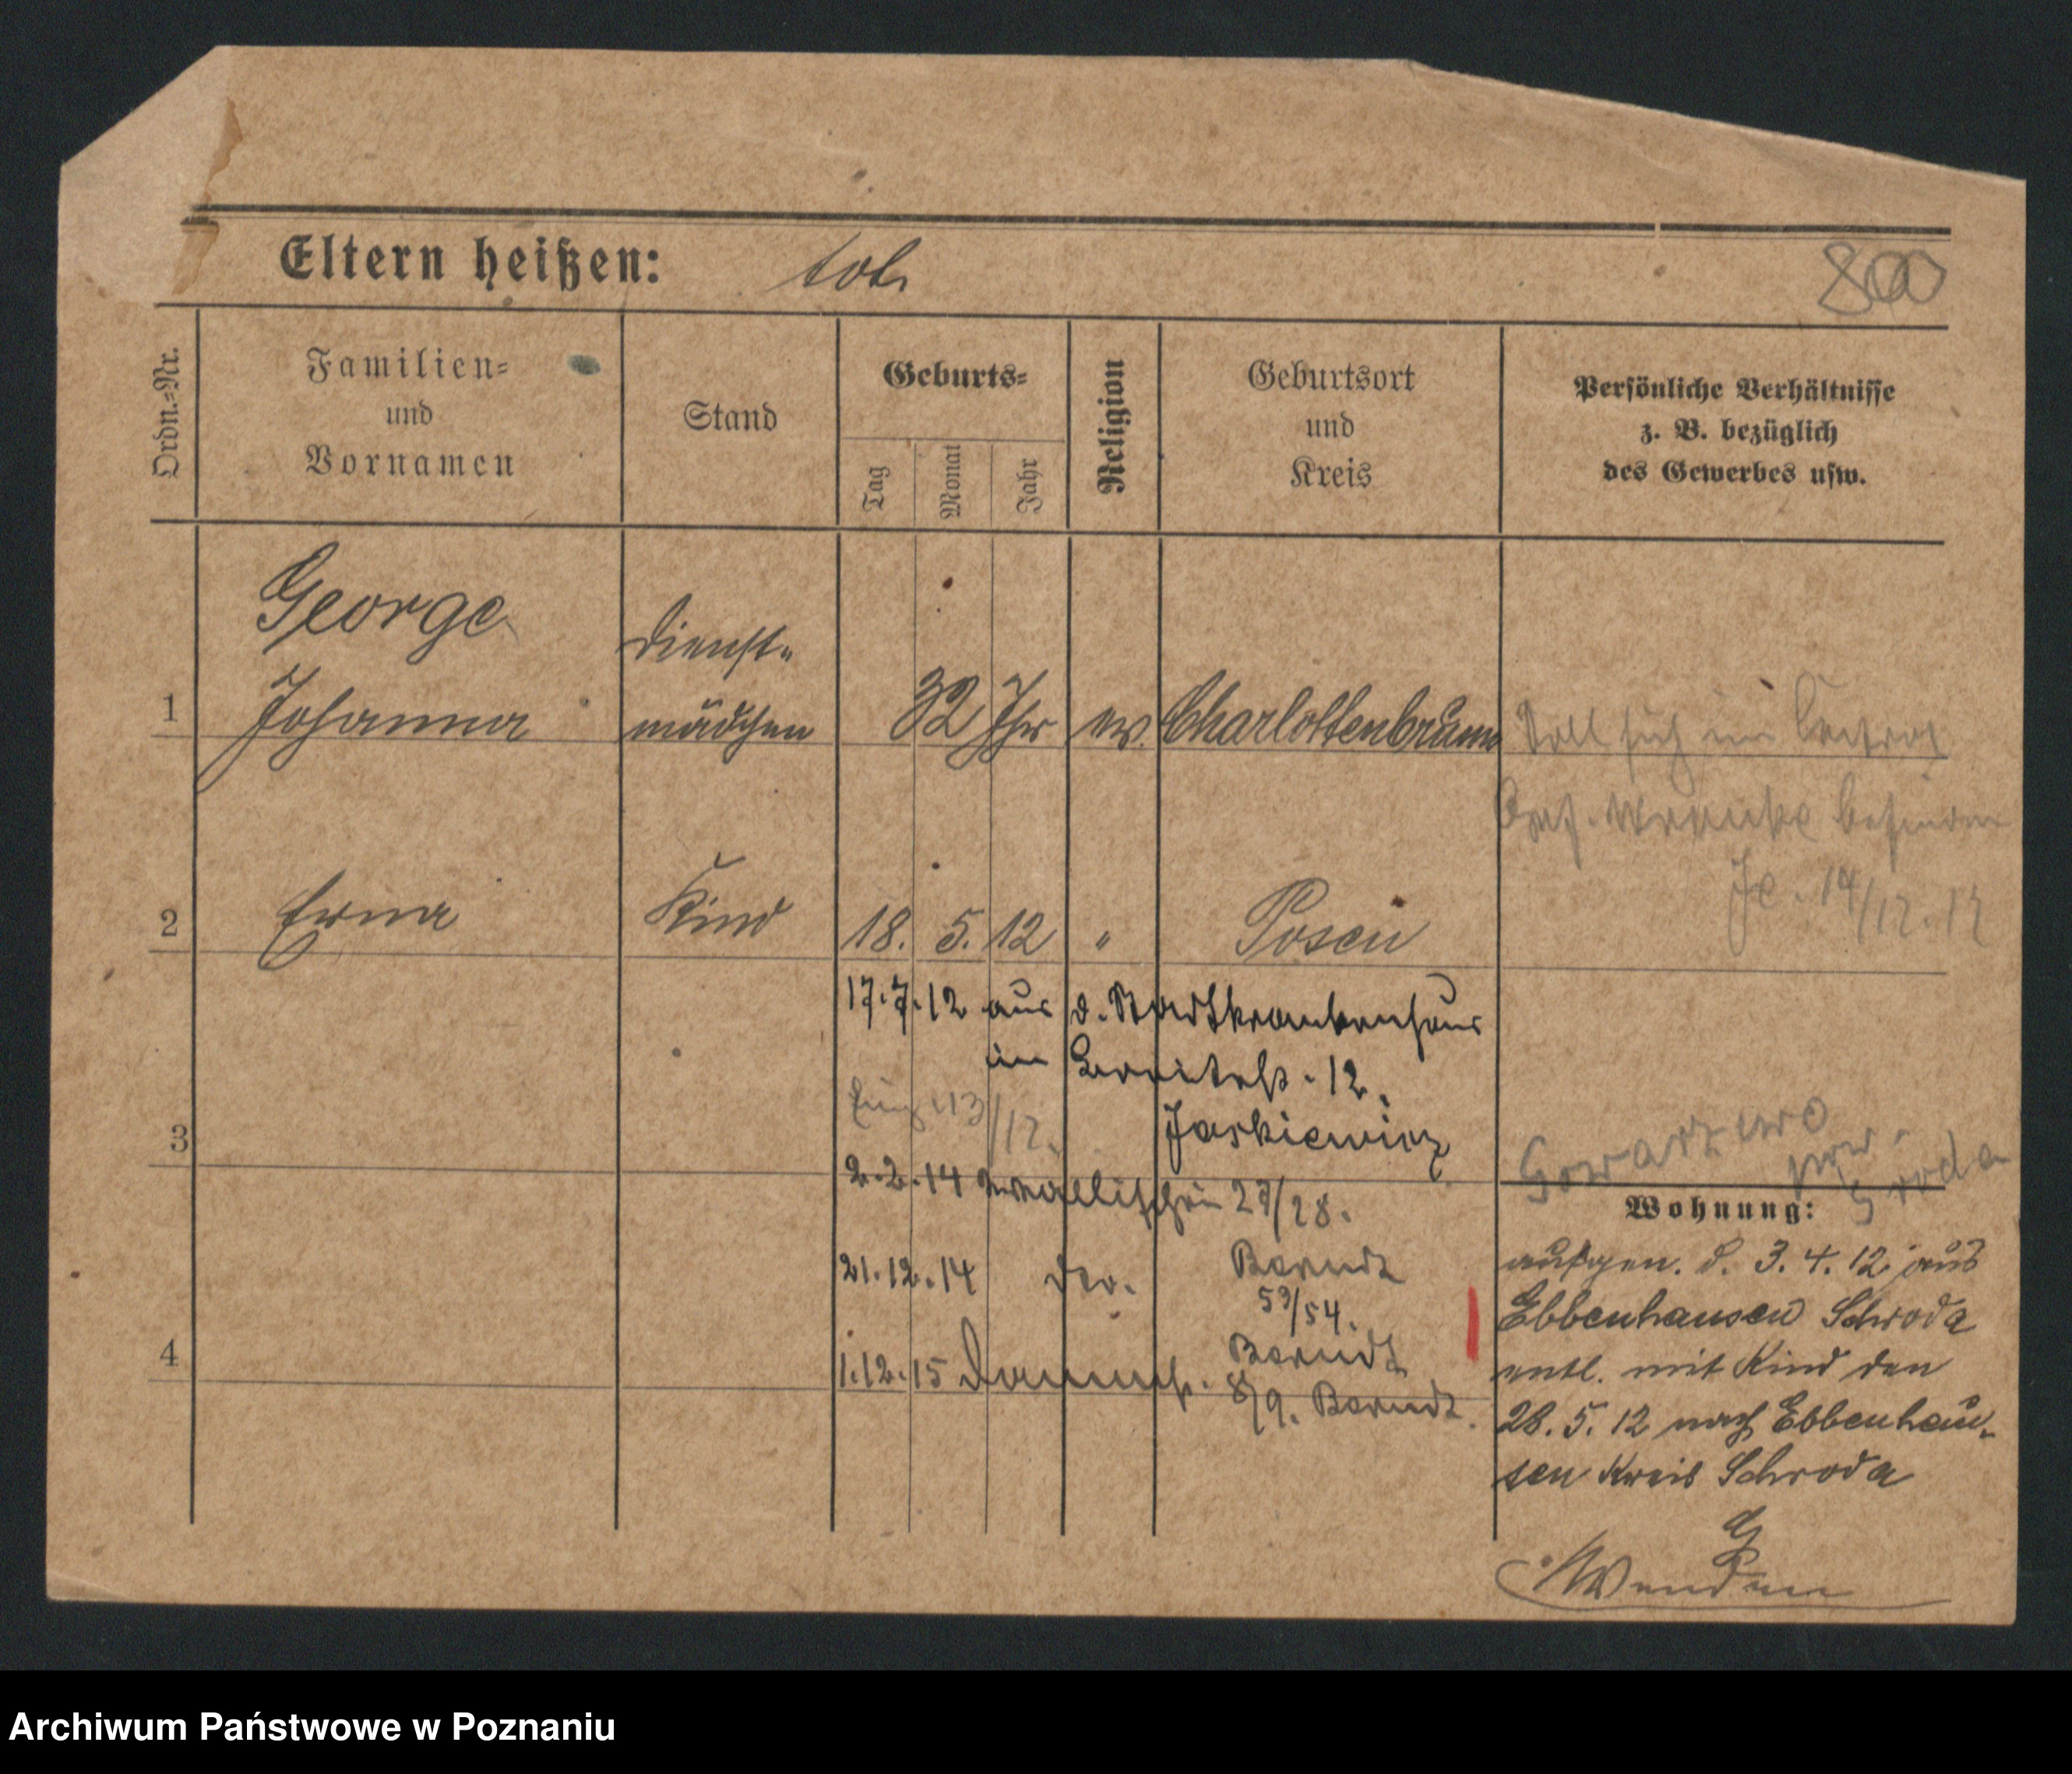 Eltern heißen: tot.
800
Ordn.-Nr.
Familien-
und
Vornamen
Stand
Geburts-
Tag
Monat
Jahr
Religion
Geburtsort
und
Kreis
Persönliche Verhältnisse
z. B. bezüglich
des Gewerbes usw.
George
Johanna
Dienst-
mädchen
1
32 Jhr
ev.
Charlottenbrunn
Soll sich im
Gef. Wronke befinden
14/12.12
2
Erna
Kind
18. 5. 12
"
Posen
17.7.12 aus d. Stadtkrankenhaus
in 12.
Jaskiewicz
13/12.
3
2.2.14 Wallischei 27/28.
Berndt
21.12.14 do. 53/54.
Berndt
4
1.12.15 8/9. Berndt.
Gowarzewo
pow.
Sroda
Wohnung:
aufgen. d. 3. 4. 12 aus
Ebbenhausen Schroda
entl. mit Kind den
28. 5. 12 nach Ebbenhau-
sen Kreis Schroda
Archiwum Państwowe w Poznaniu